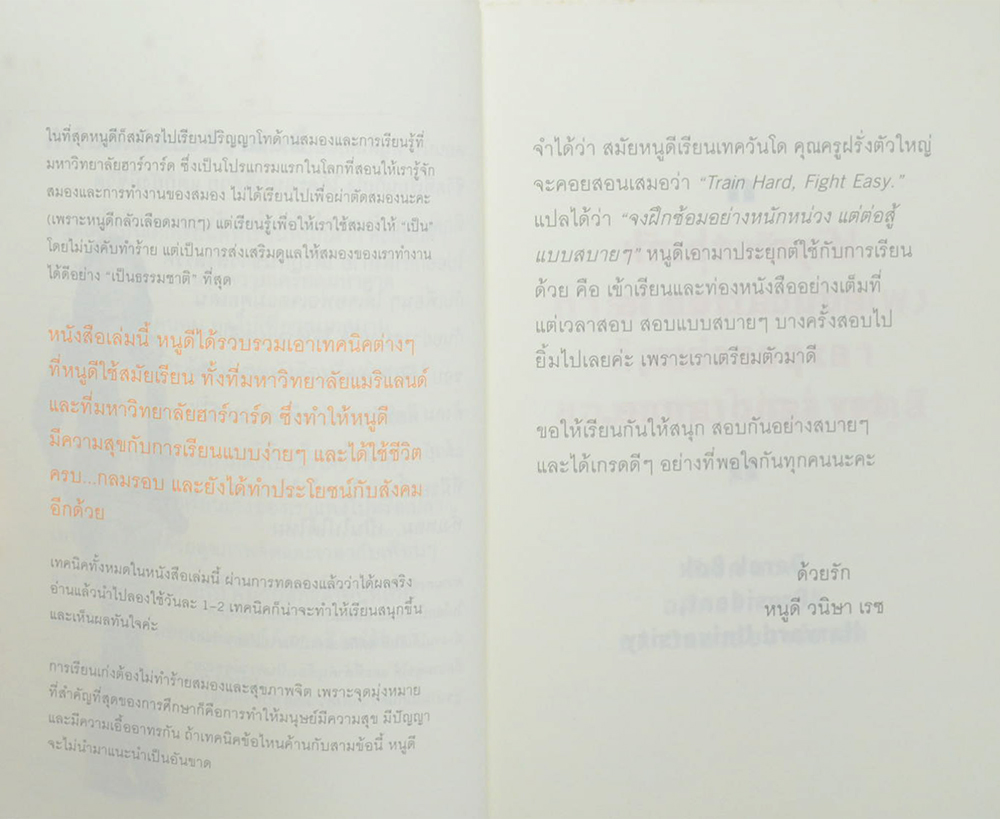 ในที่สุดหนูดีก็สมัครไปเรียนปริญญาโทด้านสมองและการเรียนรู้ที่
มหาวิทยาลัยฮาร์วาร์ด ซึ่งเป็นโปรแกรมแรกในโลกที่สอนให้เรารู้จัก
สมองและการทำงานของสมอง ไม่ได้เรียนไปเพื่อผ่าตัดสมองนะคะ
(เพราะหนูดีกลัวเลือดมากๆ) แต่เรียนรู้เพื่อให้เราใช้สมองให้ “เป็น”
โดยไม่บังคับทำร้าย แต่เป็นการส่งเสริมดูแลให้สมองของเราทำงาน
ได้ดีอย่าง “เป็นธรรมชาติ” ที่สุด
หนังสือเล่มนี้ หนูดีได้รวบรวมเอาเทคนิคต่างๆ
ที่หนูดีใช้สมัยเรียน ทั้งที่มหาวิทยาลัยแมริแลนด์
และที่มหาวิทยาลัยฮาร์วาร์ด ซึ่งทำให้หนูดี
มีความสุขกับการเรียนแบบง่ายๆ และได้ใช้ชีวิต
ครบ...กลมรอบ และยังได้ทำประโยชน์กับสังคม
อีกด้วย
เทคนิคทั้งหมดในหนังสือเล่มนี้ ผ่านการทดลองแล้วว่าได้ผลจริง
อ่านแล้วนำไปลองใช้วันละ 1-2 เทคนิคก็น่าจะทำให้เรียนสนุกขึ้น
และเห็นผลทันใจค่ะ
การเรียนเก่งต้องไม่ทำร้ายสมองและสุขภาพจิต เพราะจุดมุ่งหมาย
ที่สำคัญที่สุดของการศึกษาก็คือการทำให้มนุษย์มีความสุข มีปัญญา
และมีความเอื้ออาทรกัน ถ้าเทคนิคข้อไหนค้านกับสามข้อนี้ หนูดี
จะไม่นำมาแนะนำเป็นอันขาด
จำได้ว่า สมัยหนูดีเรียนเทควันโด คุณครูฝรั่งตัวใหญ่
จะคอยสอนเสมอว่า “Train Hard, Fight Easy.”
แปลได้ว่า “จงฝึกซ้อมอย่างหนักหน่วง แต่ต่อสู้
แบบสบายๆ” หนูดีเอามาประยุกต์ใช้กับการเรียน
ด้วย คือ เข้าเรียนและท่องหนังสืออย่างเต็มที่
แต่เวลาสอบ สอบแบบสบายๆ บางครั้งสอบไป
ยิ้มไปเลยค่ะ เพราะเราเตรียมตัวมาดี
ขอให้เรียนกันให้สนุก สอบกันอย่างสบายๆ
และได้เกรดดีๆ อย่างที่พอใจกันทุกคนนะคะ
ด้วยรัก
หนูดี วนิษา เรซ